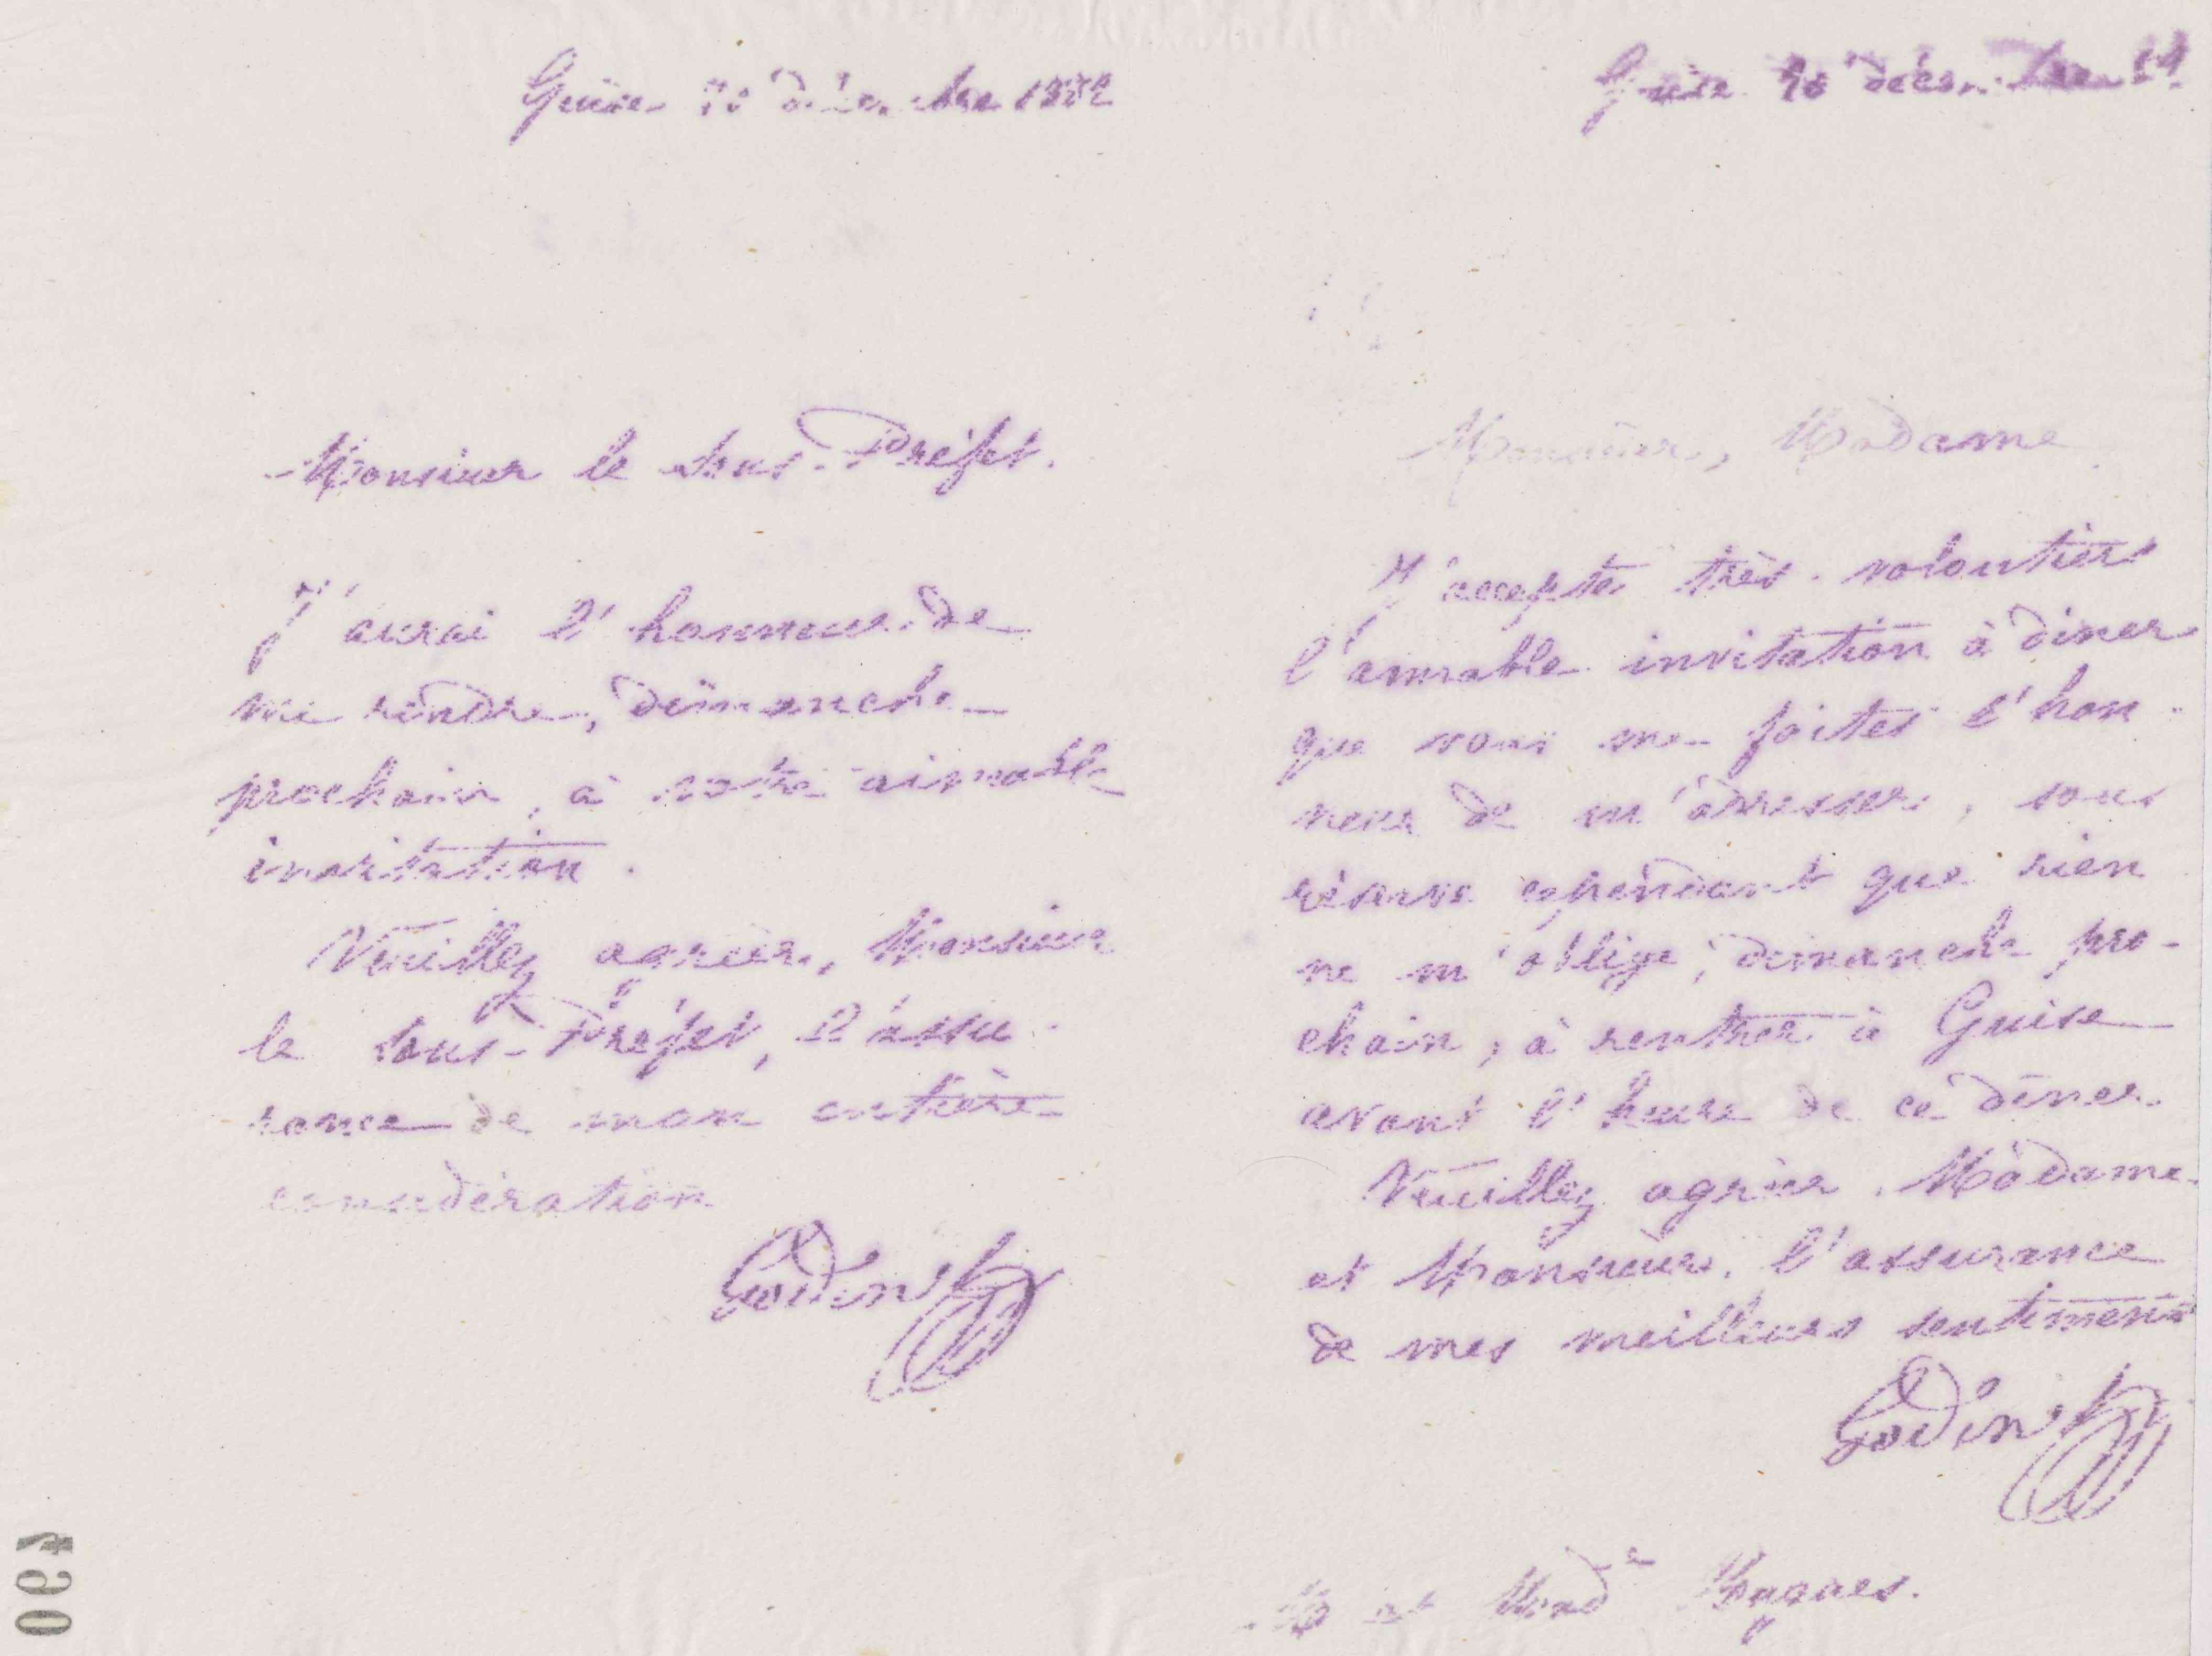 Guise décembre 1882
Monsieur le Sous-Préfet.
J'aurai l'honneur de
me rendre, dimanche
prochain, à votre aimable
invitation.
Veuillez agréer, Monsieur
le Sous-Préfet, l'assu-
rance de mon entière
considération
Godin
Guise décembre
Monsieur, Madame
J'accepte très volontiers
l'aimable invitation à diner
que vous me faites l'hon-
neur de m'adresser, sous
réserve cependant que rien
ne m'oblige, dimanche pro-
chain, à rentrer à Guise
avant l'heure de ce diner.
Veuillez agréer, Madame
et Monsieur, l'assurance
de mes meilleurs sentiments
Godin
M et Madᵉ
490